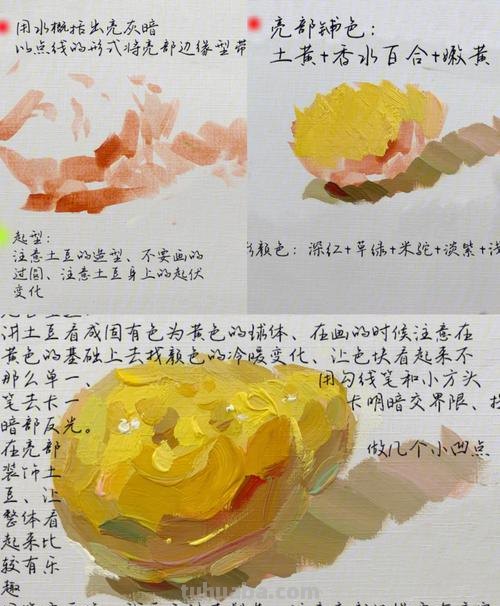 用水概括出亮灰暗
以点线的形式将亮部边缘型带
起型:
注意土豆的造型、不要画的
过圆、注意土豆身上的起伏
变化
亮部铺色:
土黄+香水百合+嫩黄
颜色: 深红+草绿+米驼+淡紫+浅
讲土豆看成固有色为黄色的球体、在画的时候注意在
黄色的基础上去找颜色的冷暖变化、让色块看起来不
那么单一、 用勾线笔和小方头
笔去卡一 卡明暗交界限、
暗部反光。
在亮部 做几个小凹点
装饰土
豆、让
整体看
起来比
较有乐
趣
tuhuaba.com